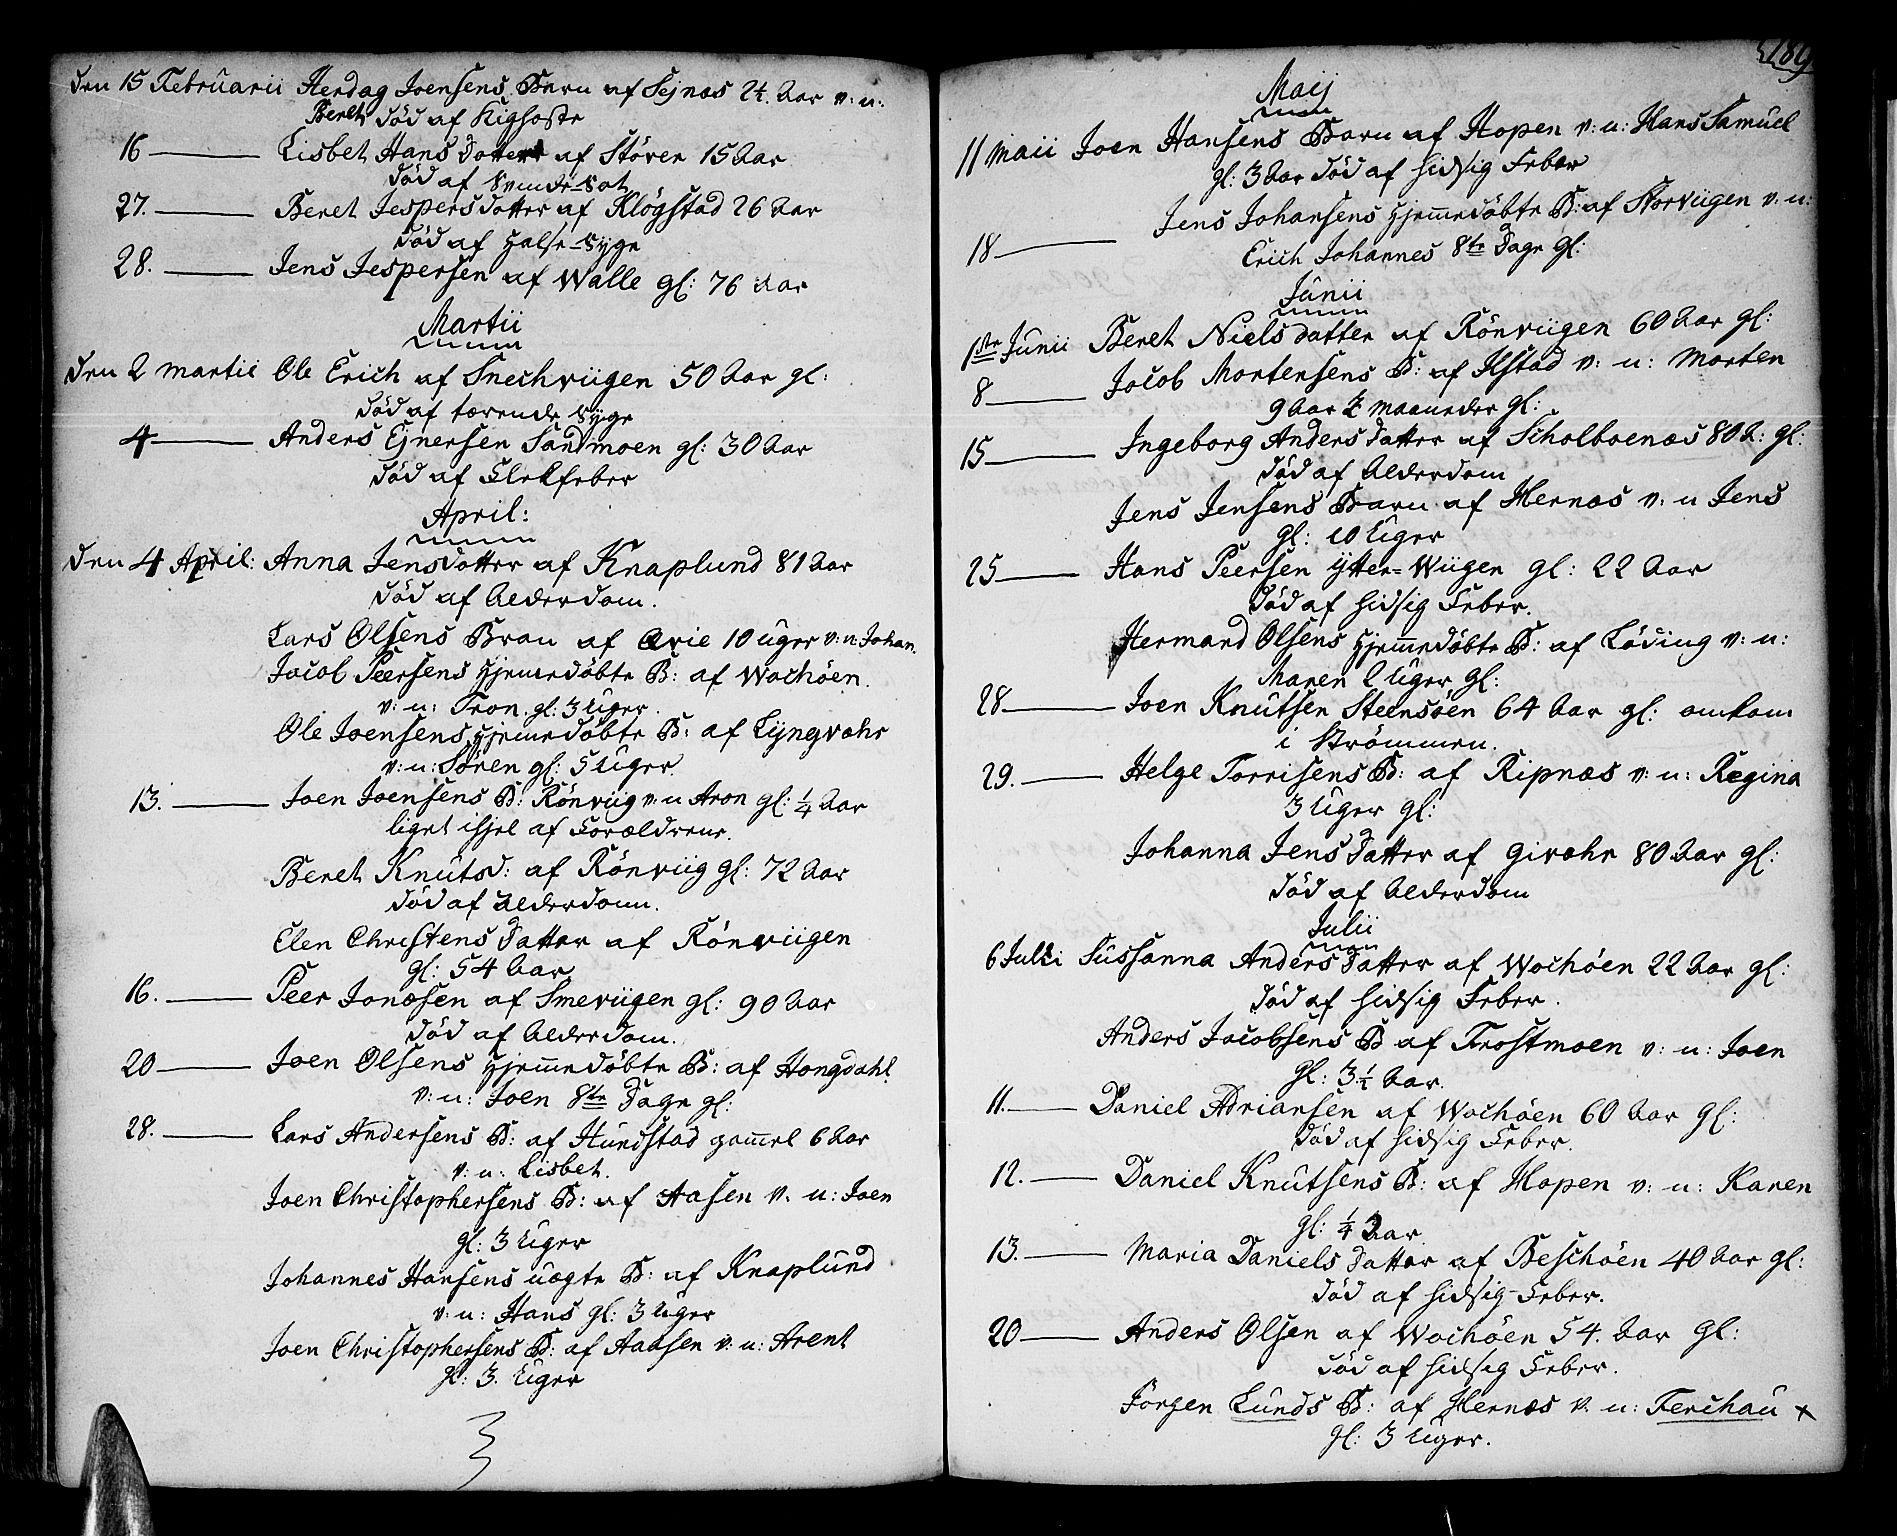 den 15 Februarii Herdag Joensens Barn af Sejnæs 2¼. Aar v: n:
Beret død af Kighoste
16 — Lisbet Hans datter af Stöver 15 Aar
død af
27. — Beret Jespers datter af Klögstad 26 Aar
død af Halse-Syge
28. — Jens Jespersen af Walle gl: 76 Aar
Martii
den 2 martii Ole Erich af Snechviigen 50 Aar gl:
død af tærende Syge
4 — Anders Ejnersen Sandmoen gl: 30 Aar
død af Flekfeber
April:
den 4 April: Anna Jensdatter af Knaplund 81 Aar
død af Alderdom.
Lars Olsens Bran af Qvie 10 uger v: n: Johan.
Jacob Peersens Hjemmedöbte B: af Wochöen.
v: n: Tron. gl: 3 Uger.
Ole Joensens Hjemmedöbte B: af Lyngvær
v: n: Sören gl: 5 Uger.
13. — Joen Joensens B: Rönviig v: n Aron gl: ¼ Aar
liget ihjel af Forældrene.
Beret Knutsd: af Rönviig gl: 72 Aar
død af alderdom.
Elen Christens datter af Rönviigen
gl: 54 Aar
16. — Peer Jonæsen af Smeviigen gl: 90 Aar
død af Alderdom.
20 — Joen Olsens Hjemmedöbte B: af Hongdahl
v: n: Joen 8te Dage gl:
28. — Lars Andersens B: af Hundstad gammel 6 Aar
v: n: Lisbet.
Joen Christophersens B: af Aasen v. n: Joen
gl: 3 Uger
Johannes Hansens uægte B: af Knaplund
v: n: Hans gl: 3 Uger
Joen Christophersens B: af Aaasen v: n: Arent
gl: 3. Uger
189
Maij
11 Maii Joen Hansens Barn af Hopen v: n: Hans Samuel
gl: 3 Aar død af hidsig Feber
18 — Jens Johansens Hjemmedöbte B: af Storviigen v: n:
Erich Johannes 8te Dage gl:
Junii
1ste Junii Beret Niels datter af Rönviigen 60 Aar gl:
8 — Jacob Mortensens B: af Ilstad v: n: Morten
9 Aar maaneder gl:
15 — Ingeborg Anders datter af Scholboenæs 80 A: gl:
död af Alderdom
Jens Jensens Barn af Hernæs v: n Jens
gl: 10 Uger
25 — Hans Peersen Ytter-Wiigen gl: 22 Aar
död af hidsig Feber.
Hermand Olsens Hjemmedöbte B: af Löding v: n:
Maren 2 Uger gl:
28 — Joen Knutsen Steensöen 64 Aar gl: omkom
i Strömmen.
29. — Helge Torrisens B: af Ripnæs v: n: Regina
3 Uger gl:
Johanna Jens datter af Givær 80 Aar gl:
død af Alderdom
Julii
6 Julii Sussanna Anders datter af Wochöen 22 Aar gl:
død af hidsig Feber.
Anders Jacobsens B af Trostmoen v: n: Joen
gl: 3½ Aar.
11. — Daniel Adriansen af Wochöen 60 Aar gl:
død af hidsig Feber.
12. — Daniel Knutsens B: af Hopen v: n: Karen
gl: ¼ Aar
13. — Maria Daniels datter af Beschöen 40 Aar gl:
død af hidsig-Feber.
20 — Anders Olsen af Wochöen 54. Aar gl:
død af hidsig Feber.
Jörgen Lunds B: af Hernæs v: n: Ferchau +
gl: 3 Uger.